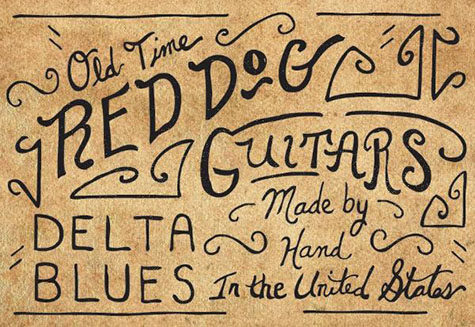 Old Time
RED DOG
GUITARS
Made by
Hand
In the United States
DELTA
BLUES